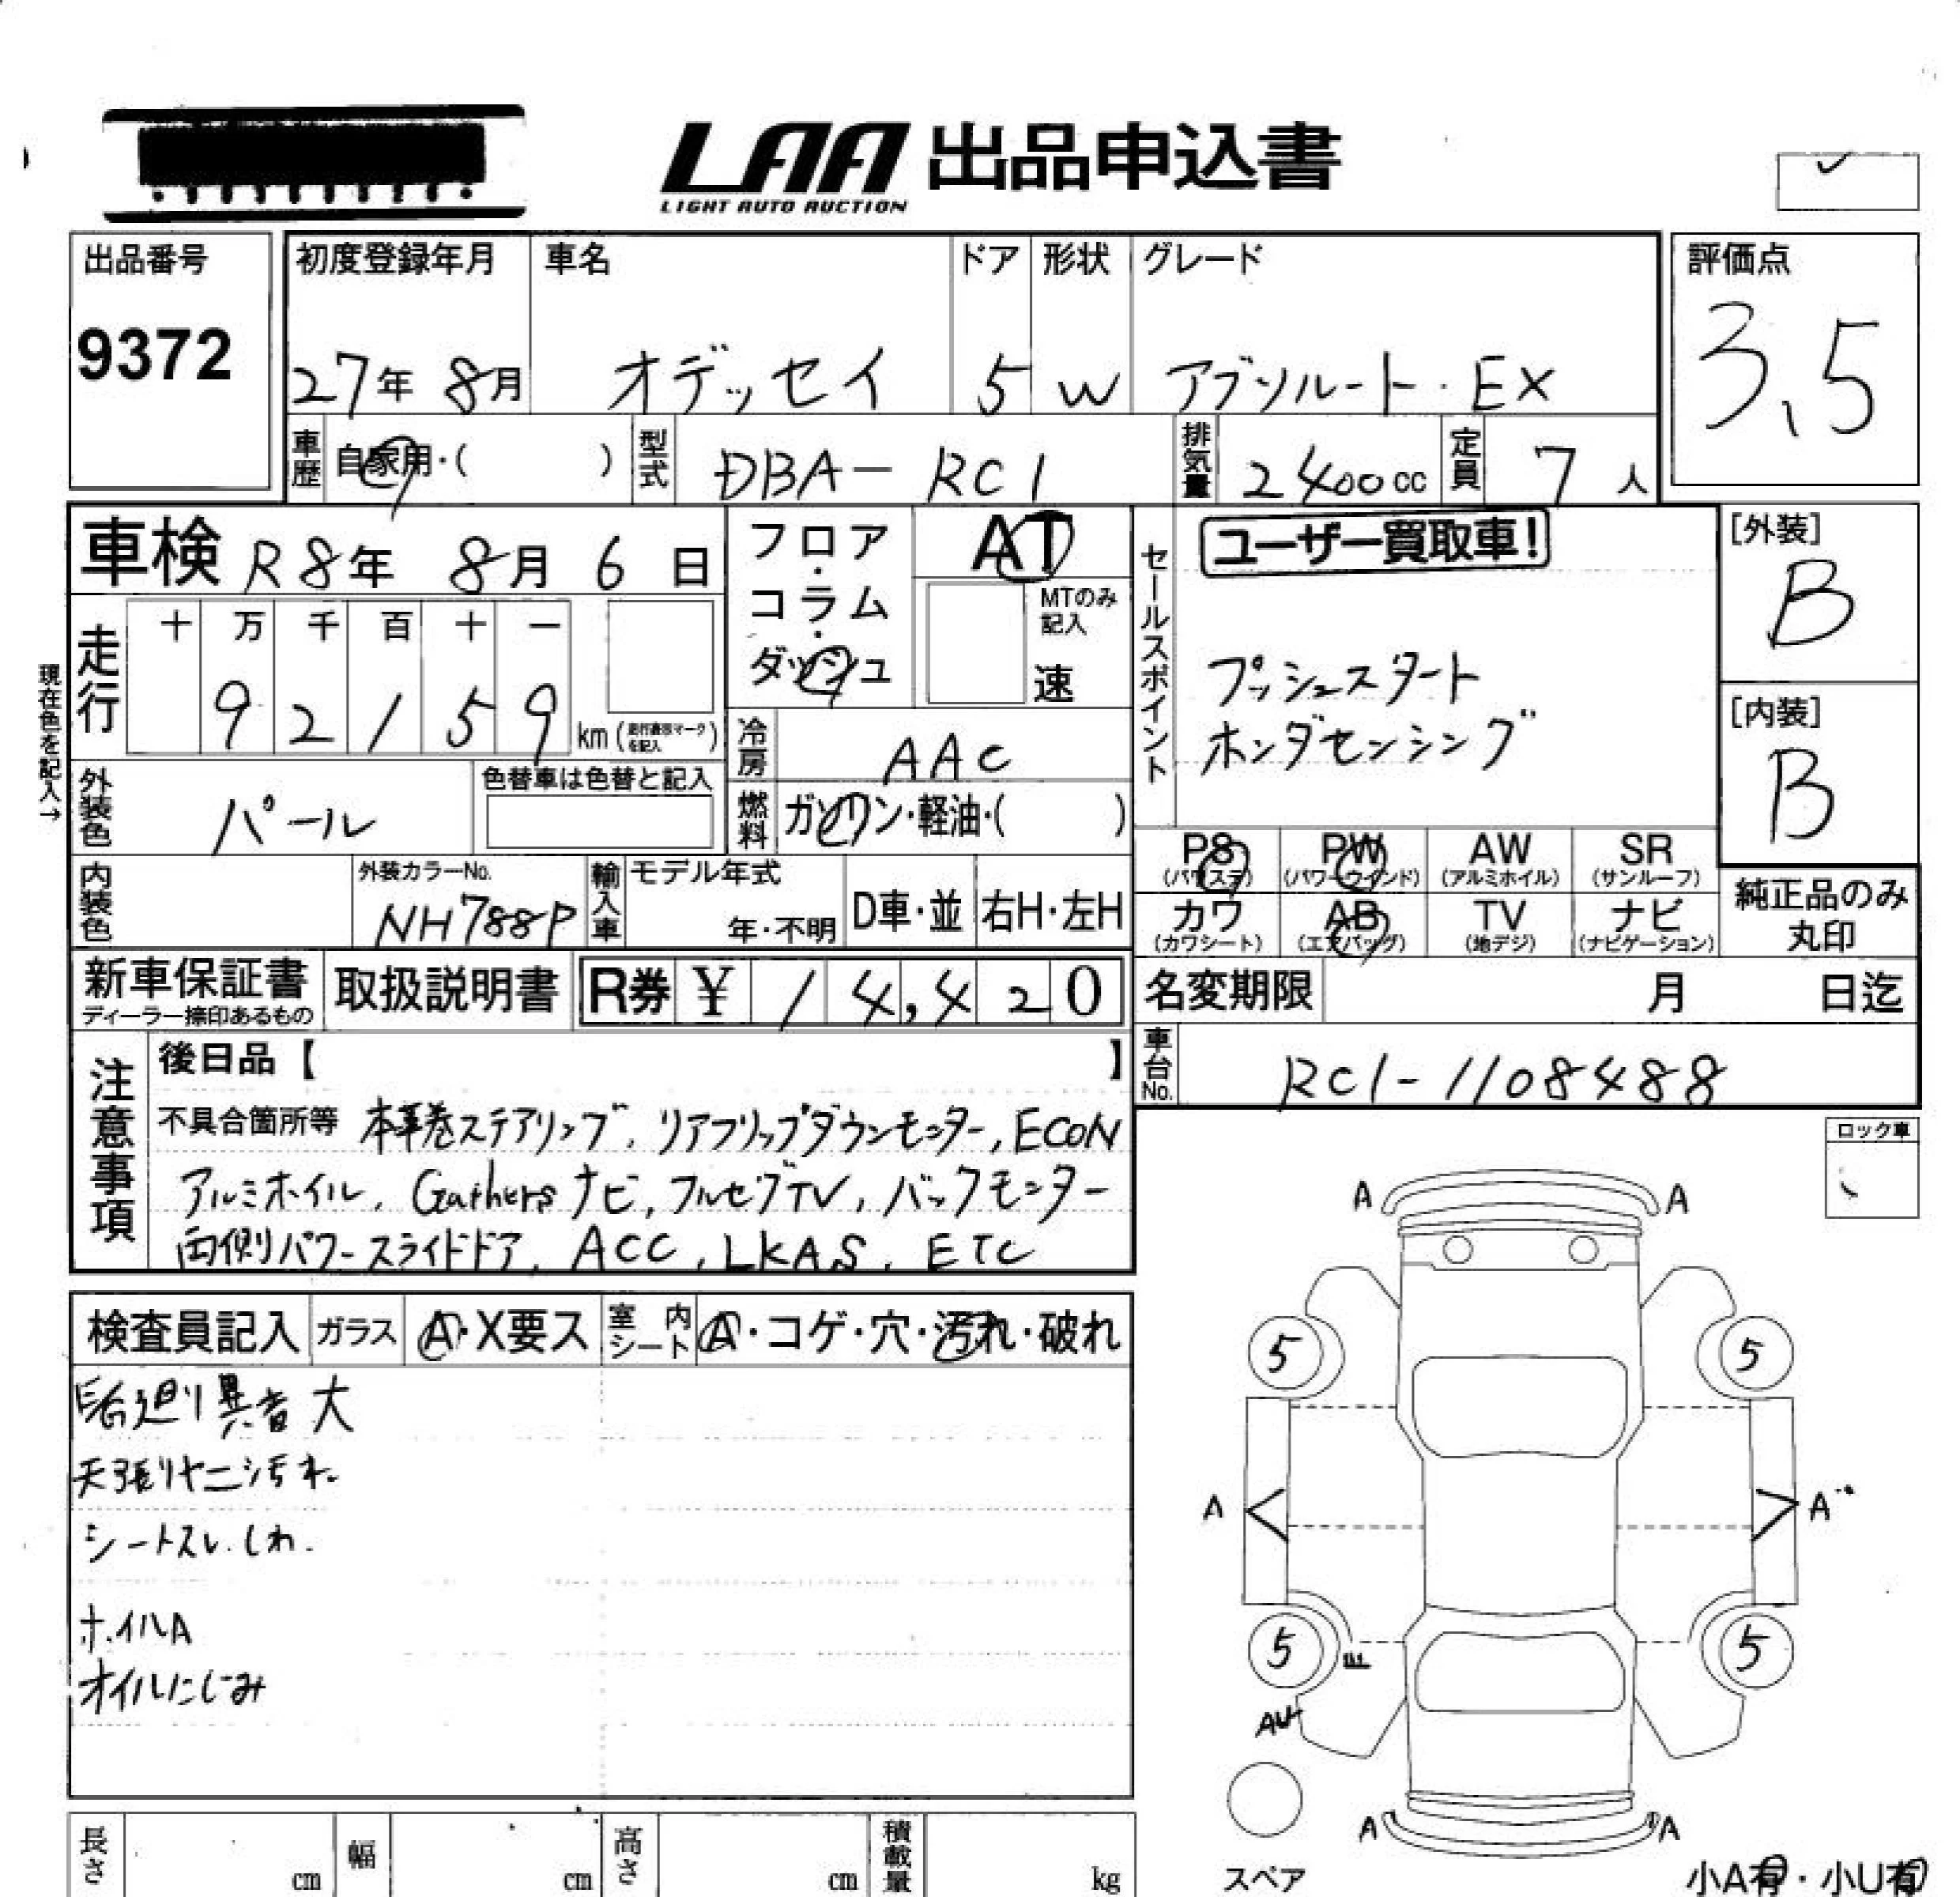 LAA 出品申込書
LIGHT AUTO AUCTION
出品番号
9372
初度登録年月
27年 8月
車名
オデッセイ
ドア
5
形状
W
グレード
アブソルート・EX
評価点
3,5
車歴
自家用・( )
型式
DBA-RC1
排気量
2400cc
定員
7人
車検 R8年 8月 6日
現在色を記入→
走行
十 万 千 百 十 一
9 2 1 5 9 km
フロア・コラム・ダッシュ
AT
MTのみ記入
速
冷房
AAC
燃料
ガソリン・軽油・( )
外装色
パール
色替車は色替と記入
内装色
外装カラーNo.
NH788P
輸入車
モデル年式
年・不明
D車・並
右H・左H
セールスポイント
ユーザー買取車!
プッシュスタート
ホンダセンシング
[外装]
B
[内装]
B
PS (パワステ)
PW (パワーウインド)
AW (アルミホイル)
SR (サンルーフ)
カワ (カワシート)
AB (エアバッグ)
TV (地デジ)
ナビ (ナビゲーション)
純正品のみ丸印
新車保証書
ディーラー捺印あるもの
取扱説明書
R券 ¥ 14,420
名変期限 月 日迄
車台No.
RC1-1108488
注意事項
後日品【 】
不具合箇所等 本革巻ステアリング、リアフリップダウンモニター, ECON
アルミホイル, Gathersナビ, フルセグTV, バックモニター
両側パワースライドドア, ACC, LKAS, ETC
ロック車
検査員記入
ガラス
A・X要ス
室内シート
A・コゲ・穴・汚れ・破れ
足廻り異音 大
天張りヤニ汚れ
シートスレ.しわ.
ホイルA
オイルにじみ
A A
5 5
A A
5 5
AU
A A
スペア
小A有・小U有
長さ cm
幅 cm
高さ cm
積載量 kg